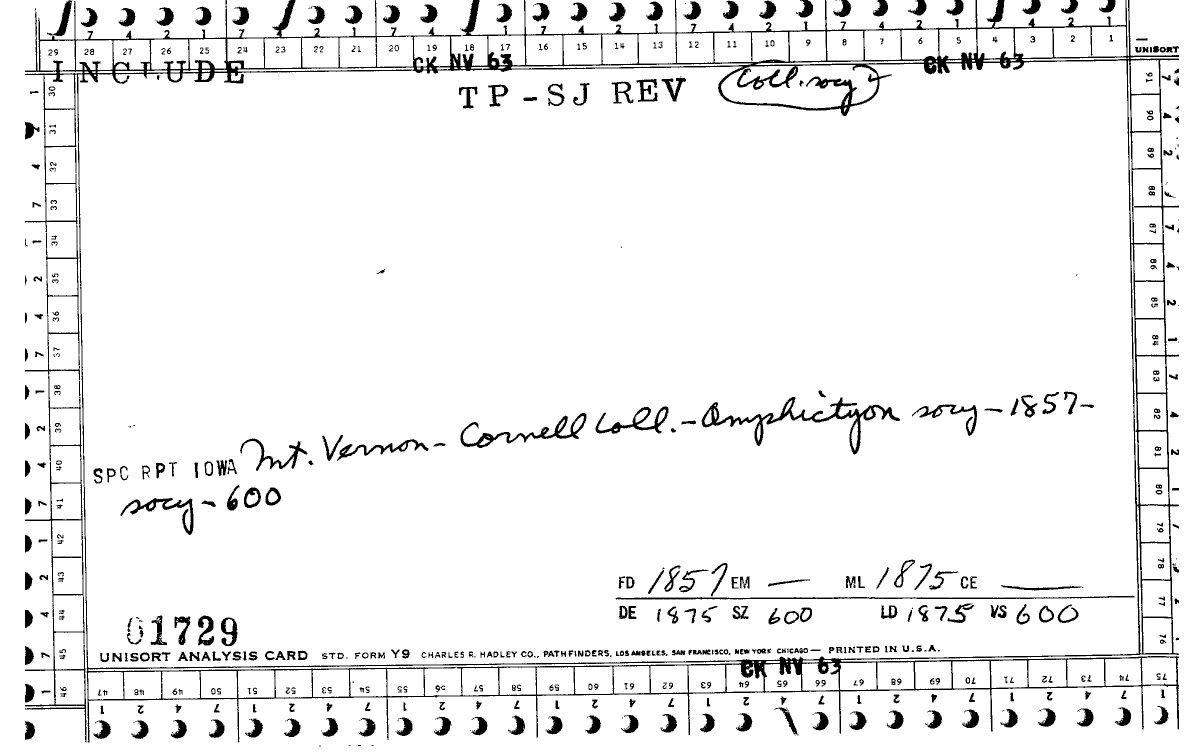 7 4 2 1 7 2 1 7 4 2 1 7 4 2 1 7 4 2 1 7 4 2 1 7 4 2 1
29 28 27 26 25 24 23 22 21 20 19 18 17 16 15 14 13 12 11 10 9 8 7 6 5 4 3 2 1
UNISORT
INCLUDE CK NV 63 CK NV 63
TP-SJ REV Coll. socy
30 31 32 33 34 35 36 37 38 39 40 41 42 43 44 45 46
91 90 89 88 87 86 85 84 83 82 81 80 79 78 77 76 75
SPC RPT IOWA Mt. Vernon - Cornell Coll. - Amphictyon socy - 1857 -
socy - 600
FD 1857 EM — ML 1875 CE —
DE 1875 SZ 600 LD 1875 VS 600
01729
UNISORT ANALYSIS CARD STD. FORM Y9 CHARLES R. HADLEY CO., PATHFINDERS, LOS ANGELES, SAN FRANCISCO, NEW YORK CHICAGO — PRINTED IN U.S.A.
CK NV 63
47 48 49 50 51 52 53 54 55 56 57 58 59 60 61 62 63 64 65 66 67 68 69 70 71 72 73 74 75